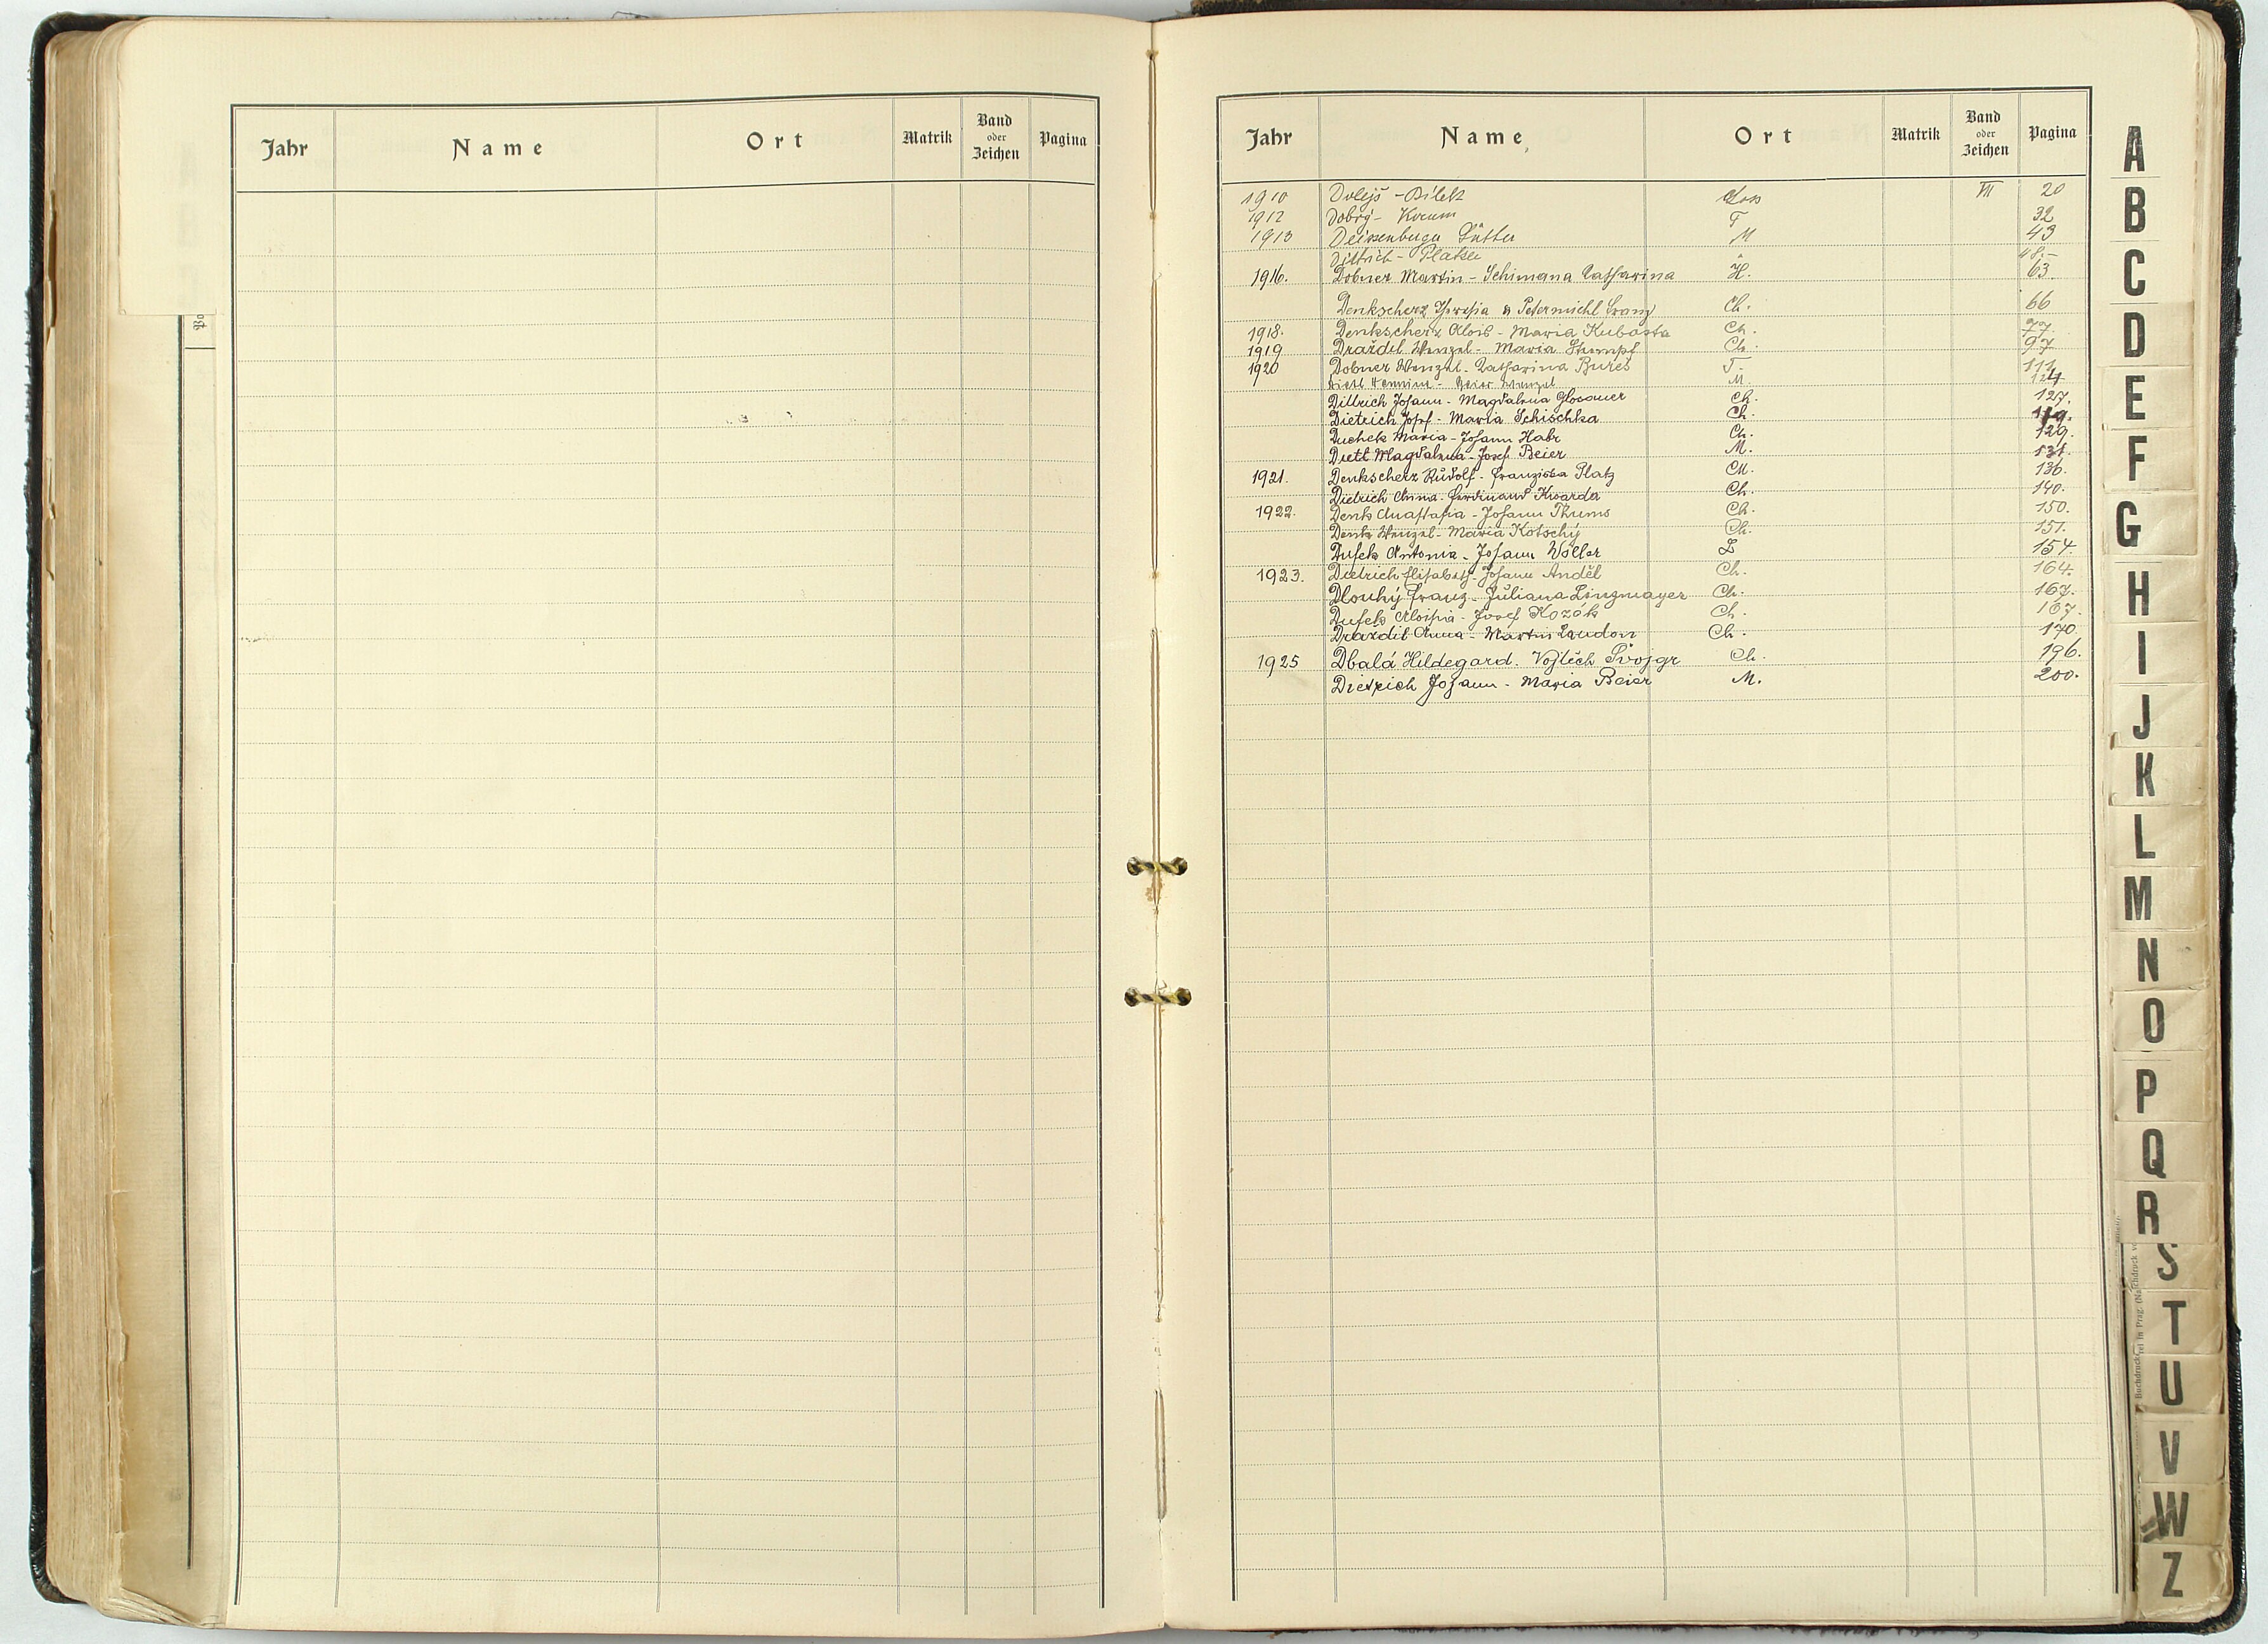 Jahr Name Ort Matrik Band oder Zeichen Pagina
Jahr Name Ort Matrik Band oder Zeichen Pagina
1910 Dolejš - Bílek VII 20
1912 Dobrý - T 32
1913 M 43
Dittrich - 48.-
1916. Dobner Martin - Schimana Katharina H. 63
Denkscherz Theresia & Petermichl Franz Ch. 66
1918. Denkscherz Alois - Maria Kubasta Ch. 77.
1919 Draždil Wenzel - Maria Stumpf Ch. 97
1920 Dobner Wenzl - Katharina Bureš T. 111
Beier Wenzel M. 124
Dittrich Johann - Magdalena Glossner Ch. 127.
Dietrich Josef - Maria Schischka Ch.
Duchek Maria - Johann Habr Ch. 129.
Dietl Magdalena - Josef Beier M. 131.
1921. Denkscherz Rudolf - Franziska Platz Ch. 136.
Dietrich Anna - Ferdinand Kwarda Ch. 140.
1922. Denk Anastasia - Johann Thums Ch. 150.
Denk Wenzel - Maria Kotschý Ch. 151.
Dufek Antonia - Johann Woller L 154.
1923. Dietrich Elisabeth - Johann Anděl Ch. 164.
Dlouhý Franz - Juliana Lingmayer Ch. 167.
Dufek Aloisia - Josef Kozák Ch. 167.
Draždil Anna - Martin Laudon Ch. 170
1925 Dbalá Hildegard. Vojtěch Švojgr Ch. 196.
Dietrich Johann - Maria Beier M. 200.
A
B
C
D
E
F
G
H
I
J
K
L
M
N
O
P
Q
R
S
T
U
V
W
Z